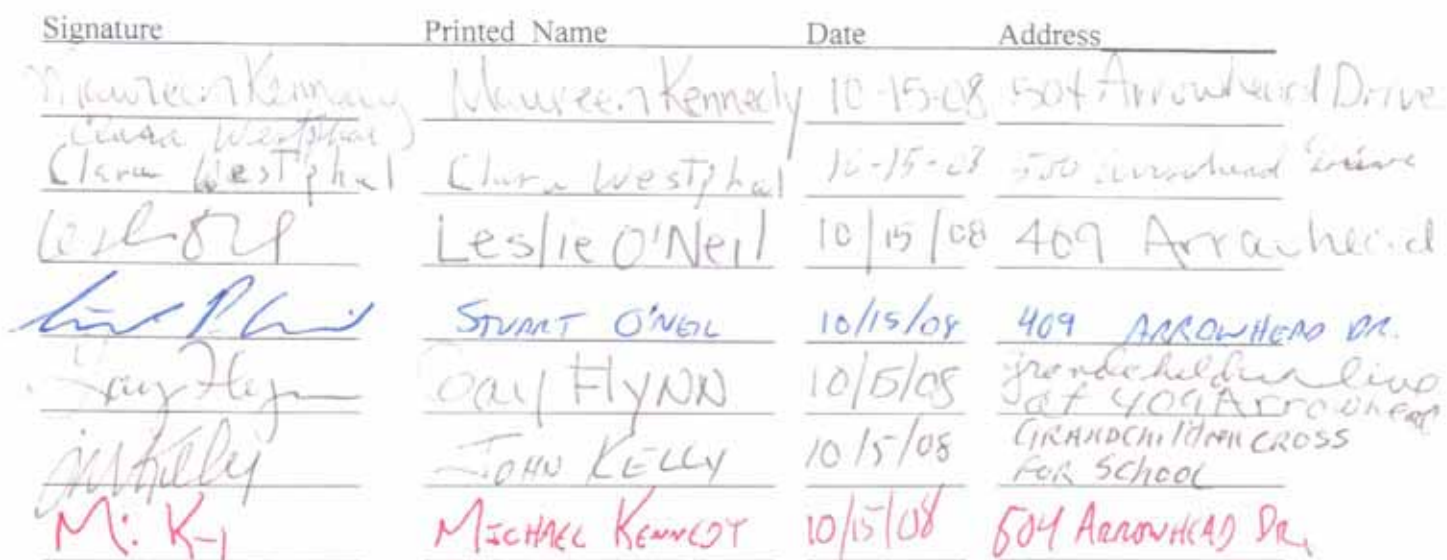 Signature Printed Name Date Address
Maureen Kennedy Maureen Kennedy 10-15-08 504 Arrowhead Drive
Clara Westphal
Clara Westphal Clara Westphal 10-15-08 Arrowhead Drive
Leslie O'Neil 10/15/08 409 Arrowhead
STUART O'NEIL 10/15/08 409 ARROWHEAD DR.
Gay Flynn Gay Flynn 10/15/08 grandchildren live
at 409 Arrowhead
JM Kelly JOHN KELLY 10/15/08 GRANDCHILDREN CROSS
FOR SCHOOL
M. K MICHAEL KENNEDY 10/15/08 504 ARROWHEAD DR.